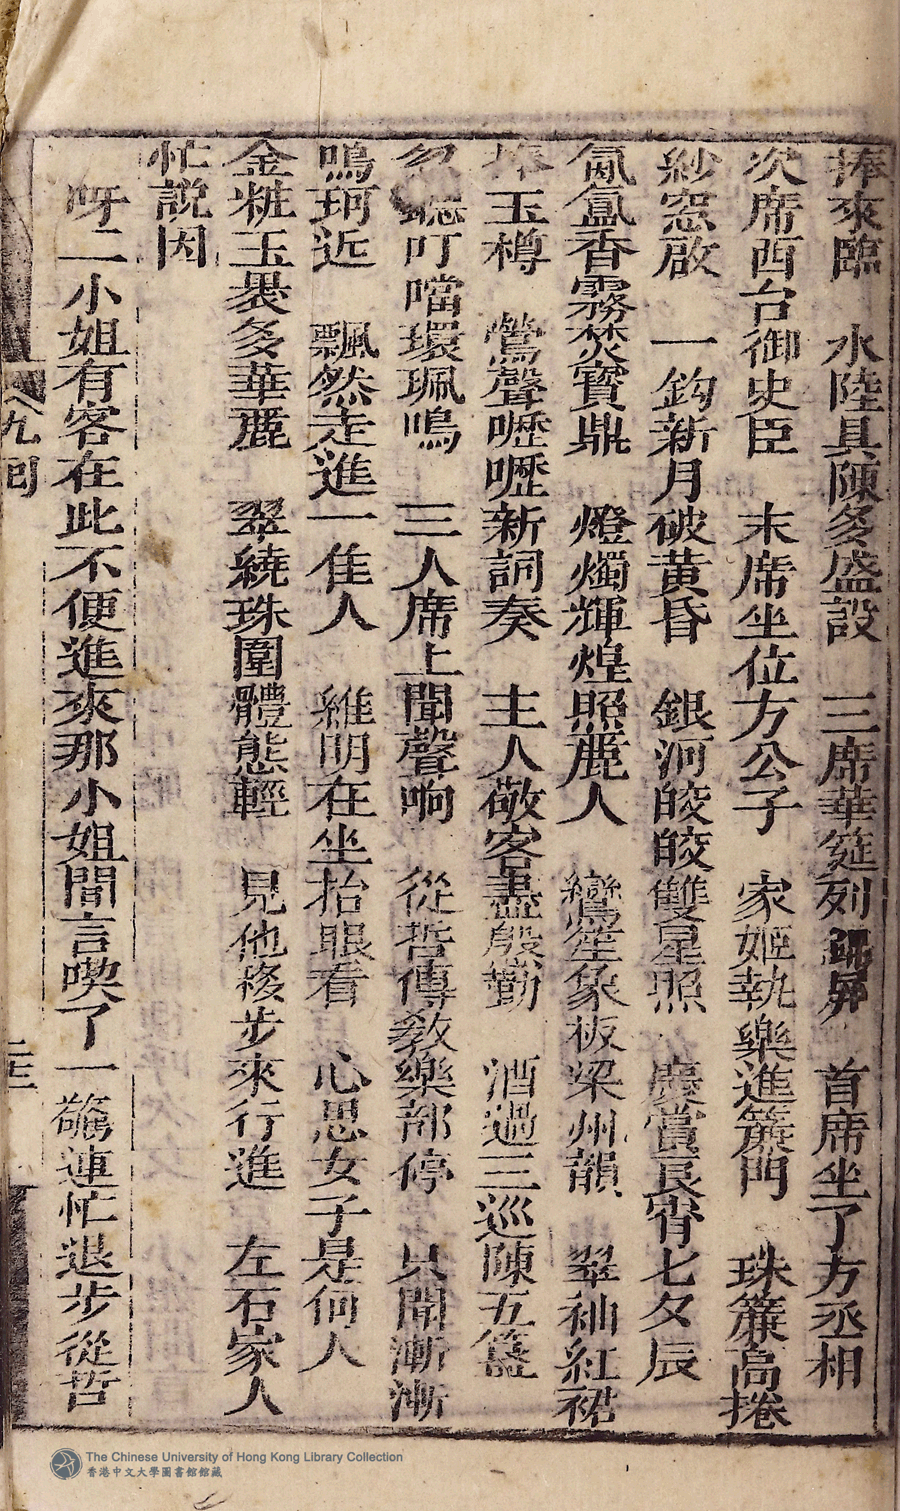 捧來臨　水陸具陳多盛設　三席華筵列錦屏　首席坐了方丞相
次席西台御史臣　末席坐位方公子　家姬執樂進簾門　珠簾高捲
紗窓啟　一鈎新月破黃昏　銀河皎皎雙星照　慶賞良宵七夕辰
氤氳香霧焚寳鼎　燈燭輝煌照麗人　鸞笙象板梁州韻　翠袖紅裙
捧玉樽　鶯聲嚦嚦新詞奏　主人敬客盡殷勤　酒過三巡陳五簋
忽聽叮噹環珮鳴　三人席上聞聲响　從哲傳教樂部停　只聞漸漸
鳴珂近　飄然走進一佳人　維明在坐抬眼看　心思女子是何人
金粧玉裹多華麗　翠繞珠圍體態輕　見他移步來行進　左右家人
忙説因
呀二小姐有客在此不便進來那小姐聞言喫了一驚連忙退步從哲
九囘
二十二
The Chinese University of Hong Kong Library Collection
香港中文大學圖書館館藏